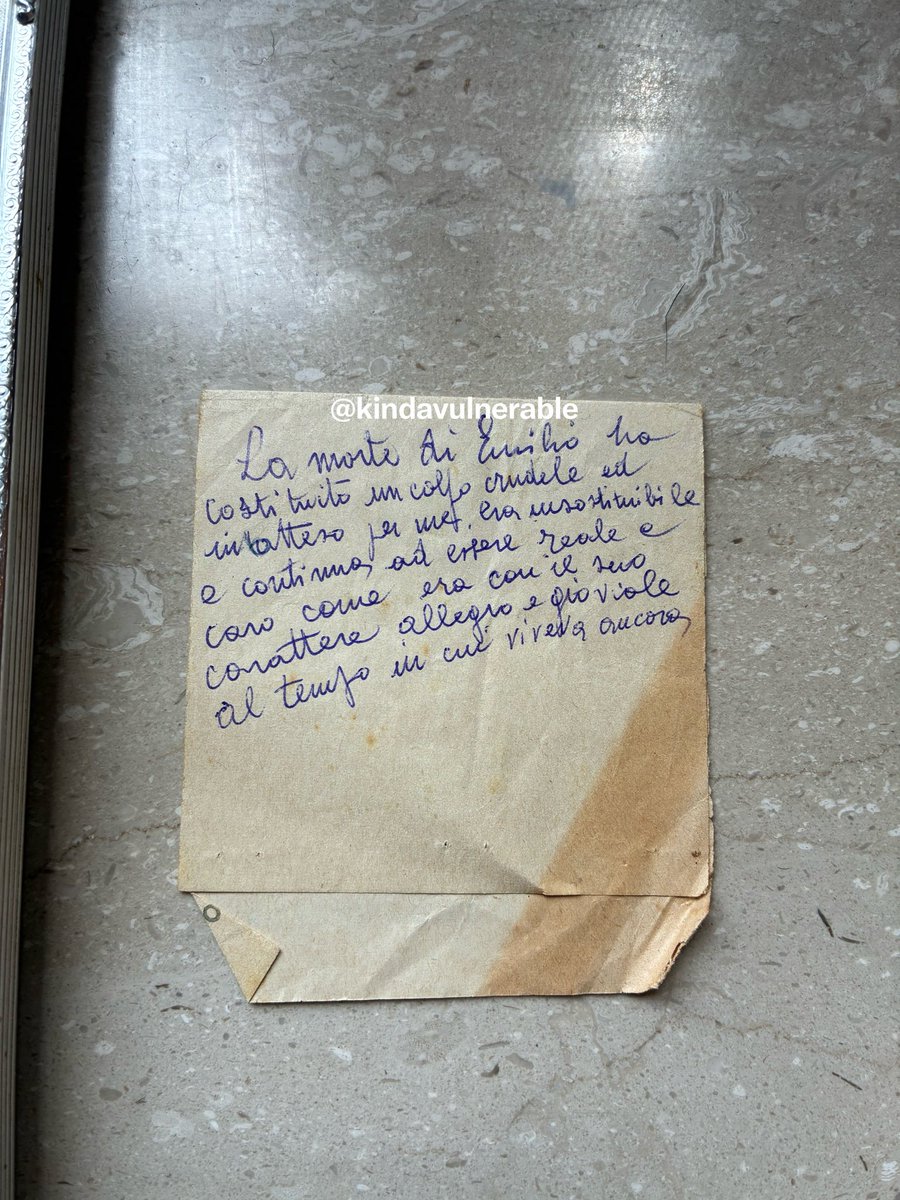 @kindavulnerable
La morte di Emilio ha
costituito un colpo crudele ed
inatteso per me, era insostituibile
e continua, ad essere reale e
caro come era con il suo
carattere allegro e gioviale
al tempo in cui viveva ancora,